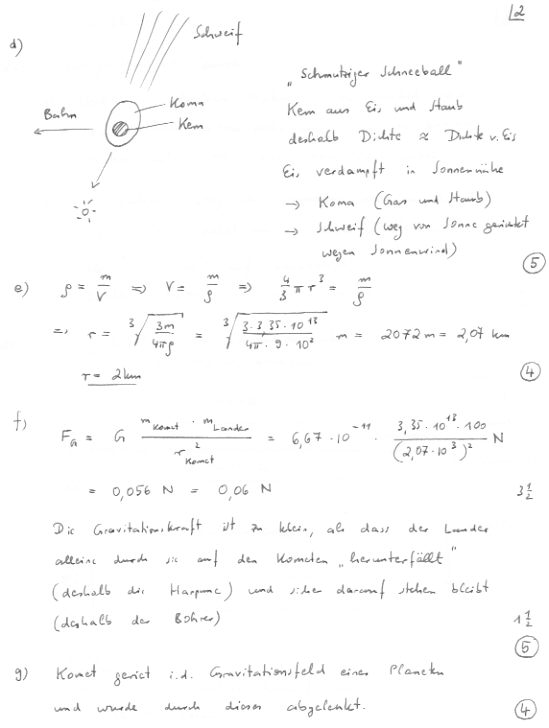 2
d)
Schweif
Koma
Kern
Bahn
„Schmutziger Schneeball"
Kern aus Eis und Staub
deshalb Dichte ≈ Dichte v. Eis
Eis verdampft in Sonnennähe
→ Koma (Gas und Staub)
→ Schweif (weg von Sonne gerichtet
wegen Sonnenwind)
5
e) ρ = m/V ⇒ V = m/ρ ⇒ 4/3 π r³ = m/ρ
⇒ r = ³√(3m/4πρ) = ³√(3·3,35·10¹³/4π·9·10²) m = 2072 m = 2,07 km
r = 2 km
4
f) F_G = G m_Komet · m_Lander / r²_Komet = 6,67·10⁻¹¹ · 3,35·10¹³·100/(2,07·10³)² N
= 0,056 N = 0,06 N
3 1/2
Die Gravitationskraft ist zu klein, als dass der Lander
alleine durch sie auf den Kometen „herunterfällt"
(deshalb die Harpune) und sicher darauf stehen bleibt
(deshalb der Bohrer)
1 1/2
5
g) Komet geriet i.d. Gravitationsfeld eines Planeten
und wurde durch dieses abgelenkt.
4